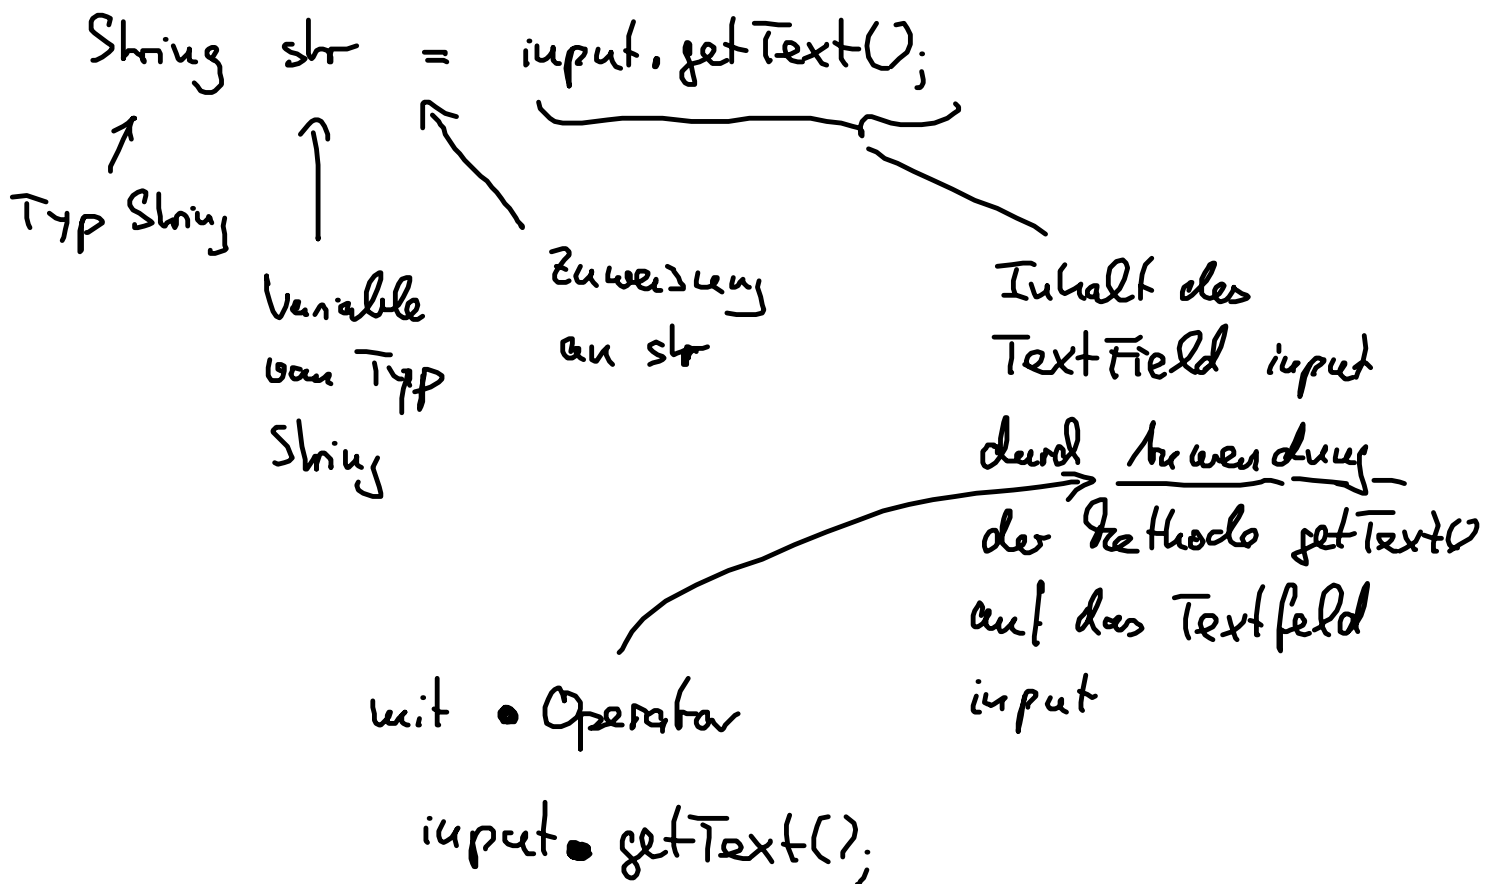 String str = input.getText();
Typ String
Variable
vom Typ
String
Zuweisung
an str
Inhalt des
TextField input
durch Anwendung
der Methode getText()
auf das Textfeld
input
mit • Operator
input.getText();